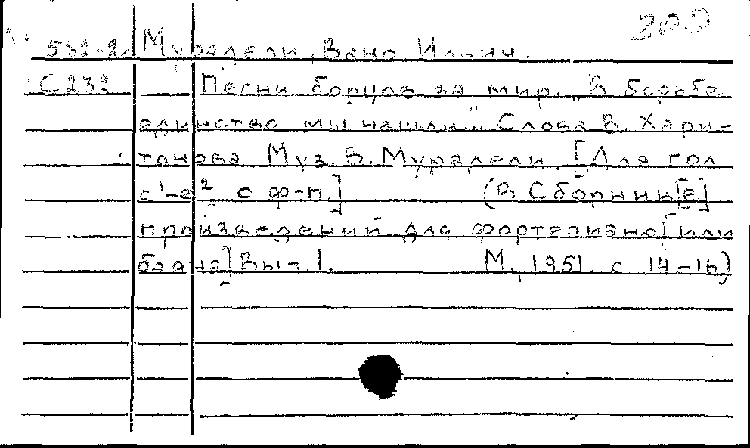 309
532-2 Мурадели, Вано Ильич.
С232 Песни борцов за мир. „В борьбе
единство мы нашли". Слова В. Хари-
тонова Муз. В. Мурадели. [Для гол.
с ф-п.] (В Сборник[е]
произведений для фортепиано [или
баяна] Вып. 1. М., 1951. с. 14-16)